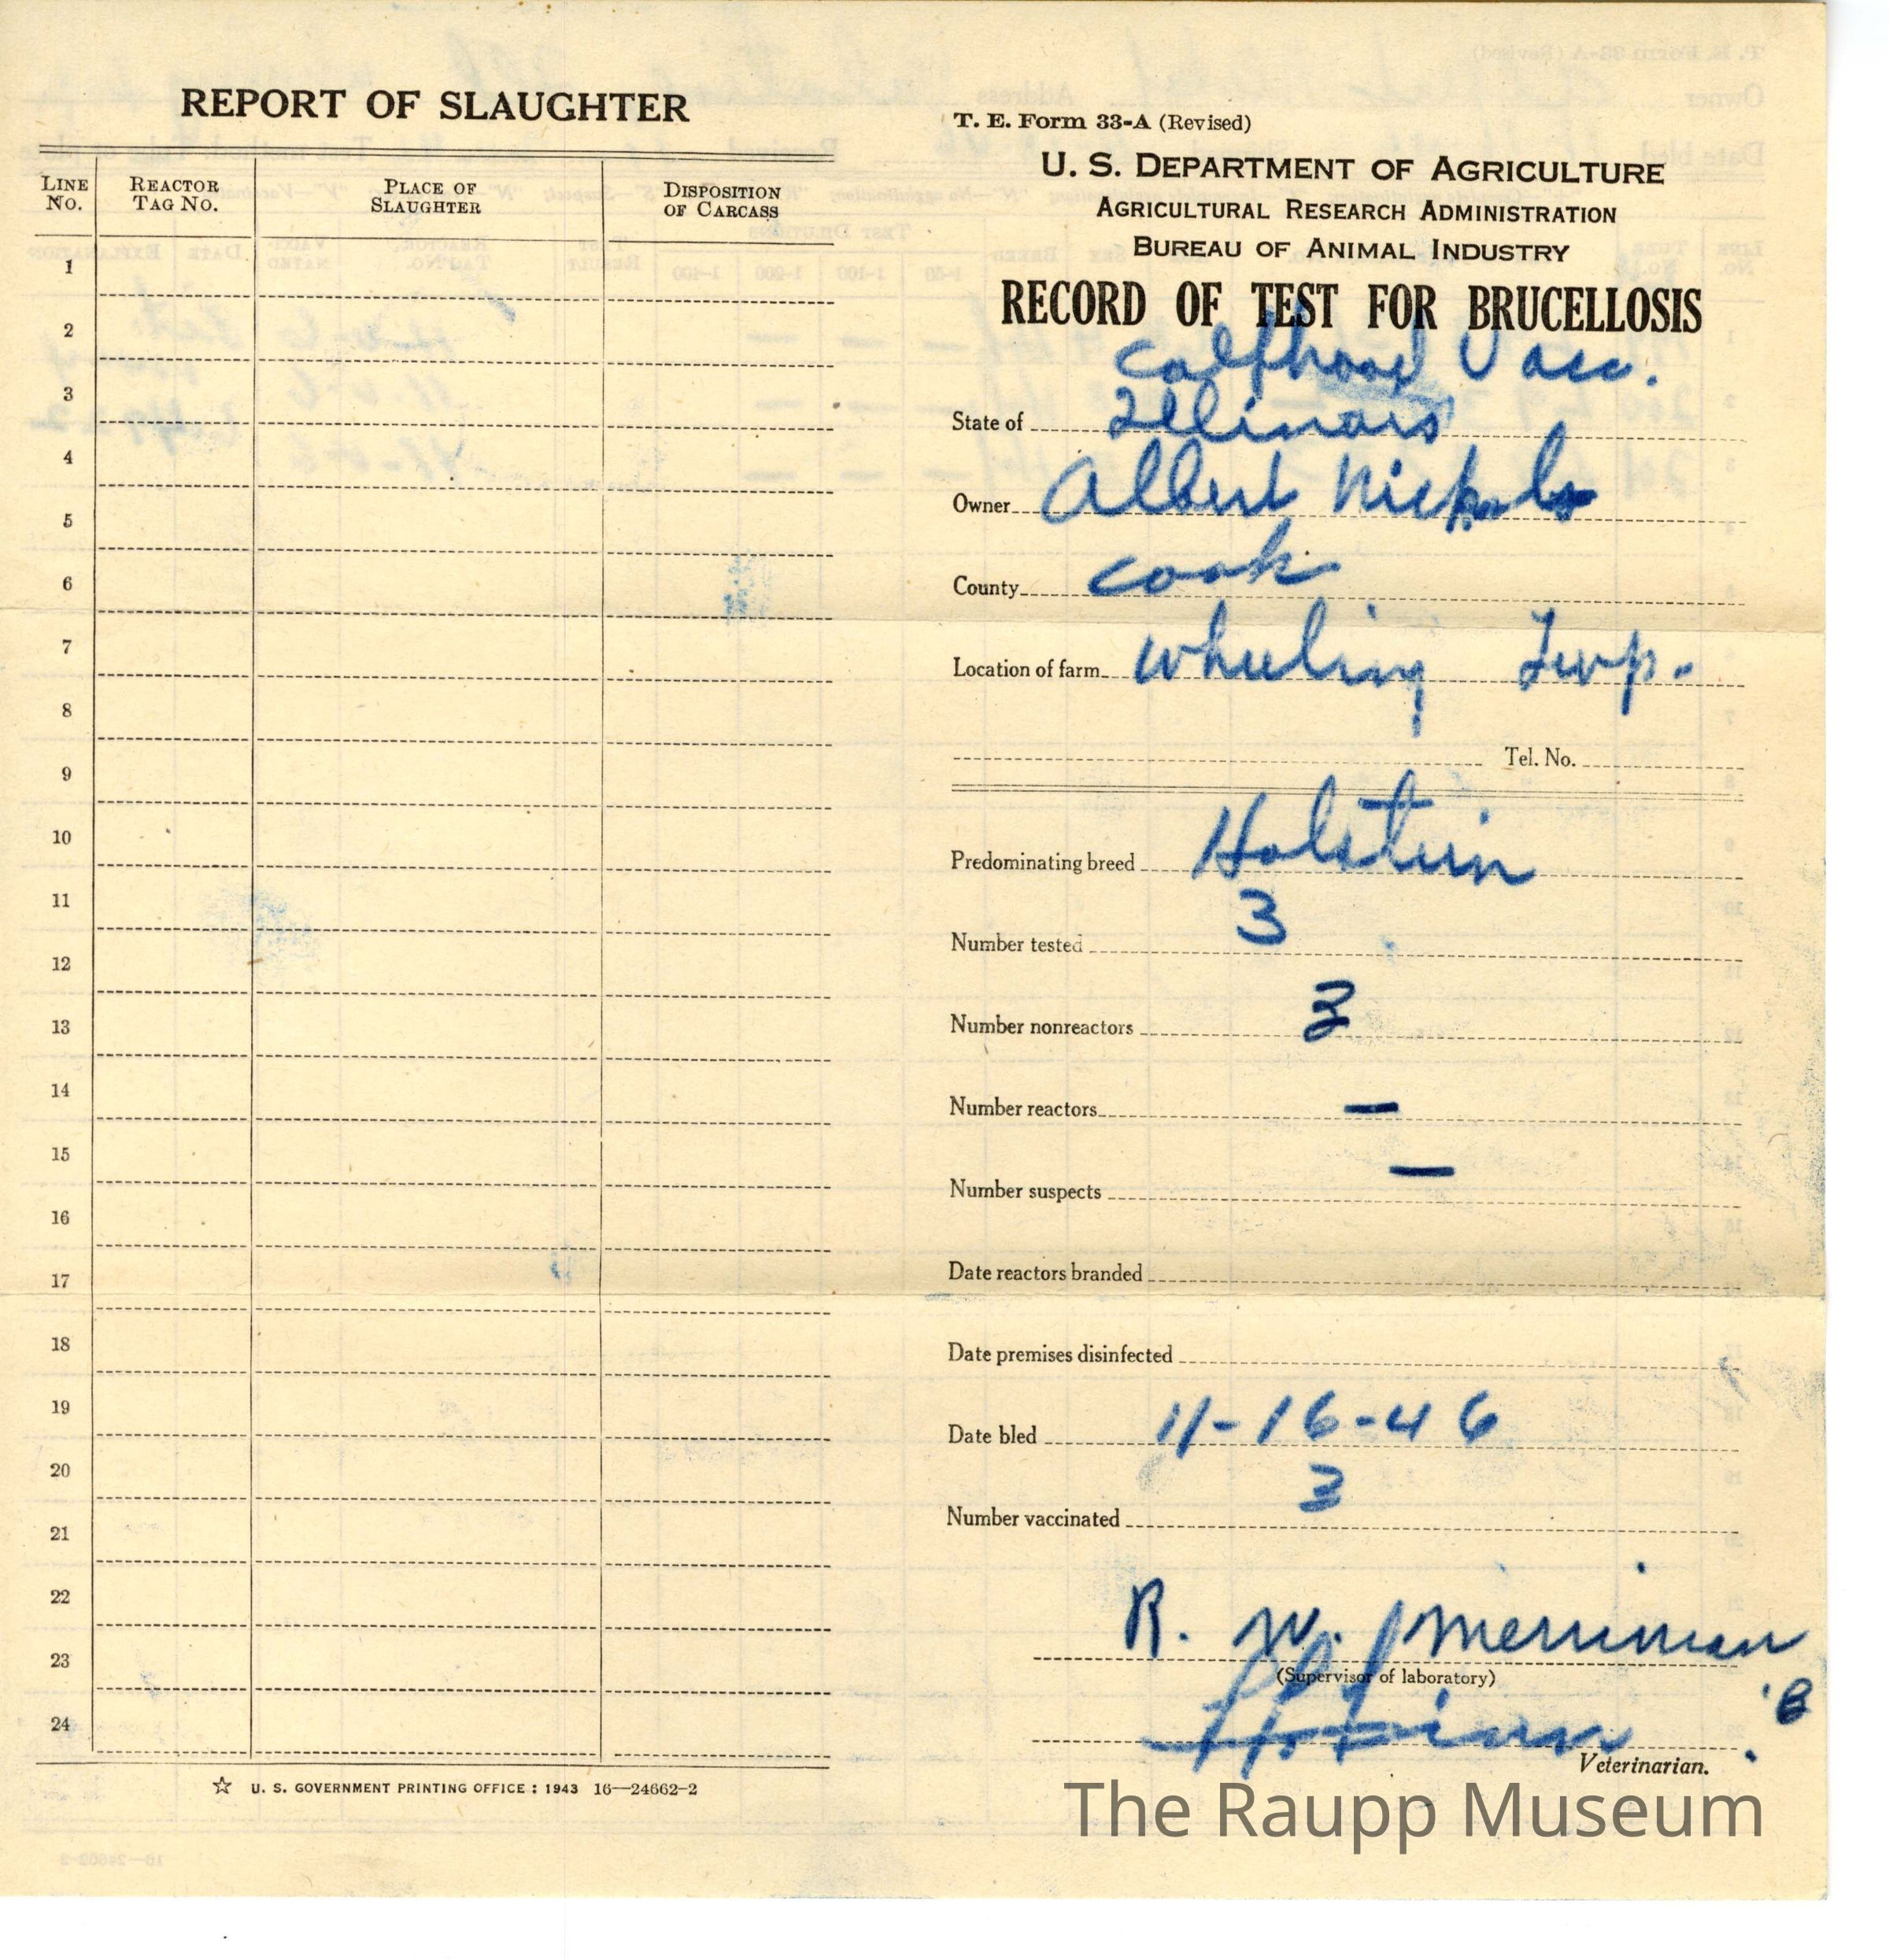 REPORT OF SLAUGHTER
LINE No. REACTOR TAG No. PLACE OF SLAUGHTER DISPOSITION OF CARCASS
1
2
3
4
5
6
7
8
9
10
11
12
13
14
15
16
17
18
19
20
21
22
23
24
☆ U. S. GOVERNMENT PRINTING OFFICE : 1943 16—24662-2
T. E. Form 33-A (Revised)
U. S. DEPARTMENT OF AGRICULTURE
AGRICULTURAL RESEARCH ADMINISTRATION
BUREAU OF ANIMAL INDUSTRY
RECORD OF TEST FOR BRUCELLOSIS
Calfhood Vacc.
State of Illinois
Owner Albert Nichols
County Cook
Location of farm Wheeling Twp.
Tel. No.
Predominating breed Holstein
Number tested 3
Number nonreactors 3
Number reactors —
Number suspects —
Date reactors branded
Date premises disinfected
Date bled 11-16-46
Number vaccinated 3
R. W. Merriman
(Supervisor of laboratory)
B
Veterinarian.
The Raupp Museum